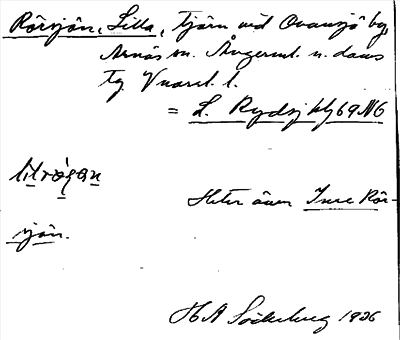 Rörsjön, Lilla, tjärn vid Ovansjö by,
Arnäs sn. Ångerml. n. dom
tg. V
= L. Rydsj blj 69 NG
litrogan
Heter även Inre Rör-
sjön.
H A Söderberg 1926